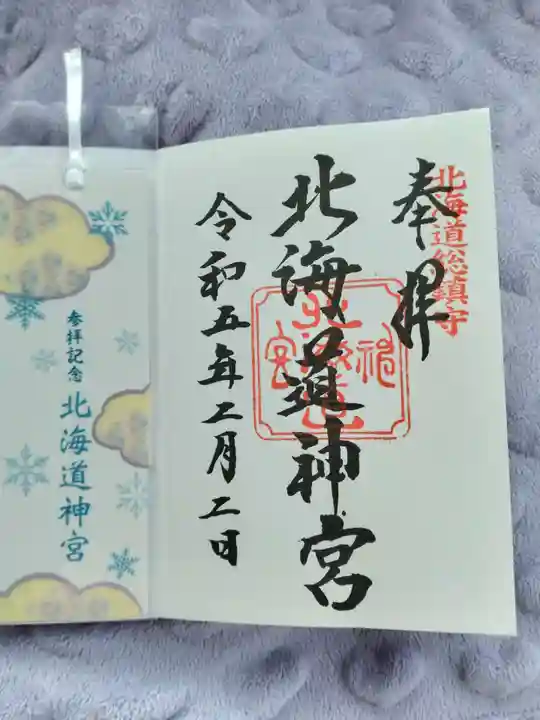 奉拝
北海道総鎮守
北海道神宮
令和五年二月二日
参拝記念
北海道神宮